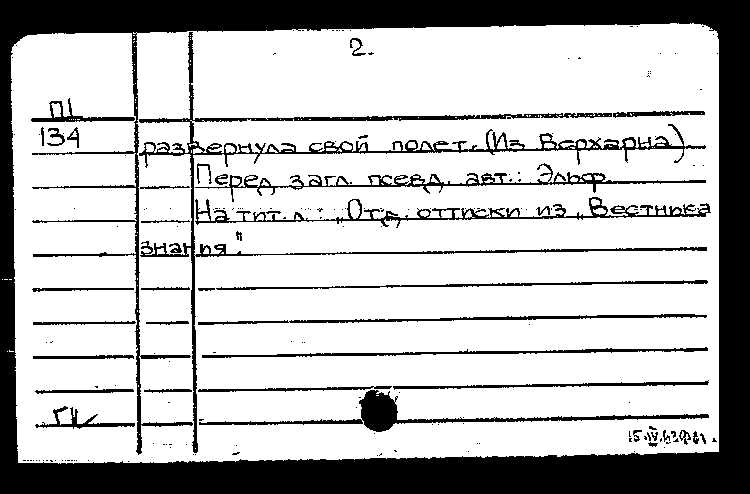 2.
П1
134
развернула свой полет. (Из Верхарна)
Перед загл. псевд. авт.: Эльф.
На тит. л.: „Отд. оттиски из „Вестника
знания".
15.IV.63